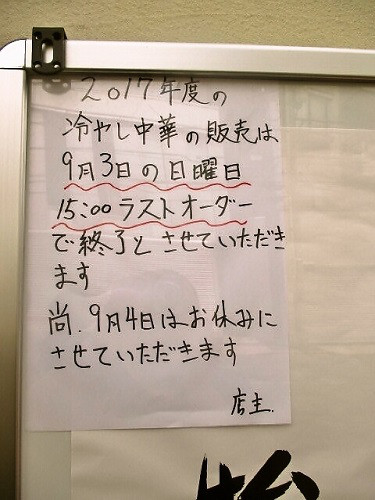 2017年度の
冷やし中華の販売は
9月3日の日曜日
15:00ラストオーダー
で終了とさせていただき
ます
尚.9月4日はお休みに
させていただきます
店主.